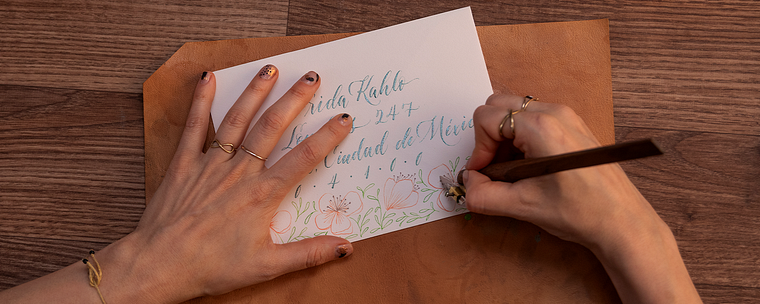 rida Kahlo
Lon 247
Ciudad de Méxic
0 4 1 0 0